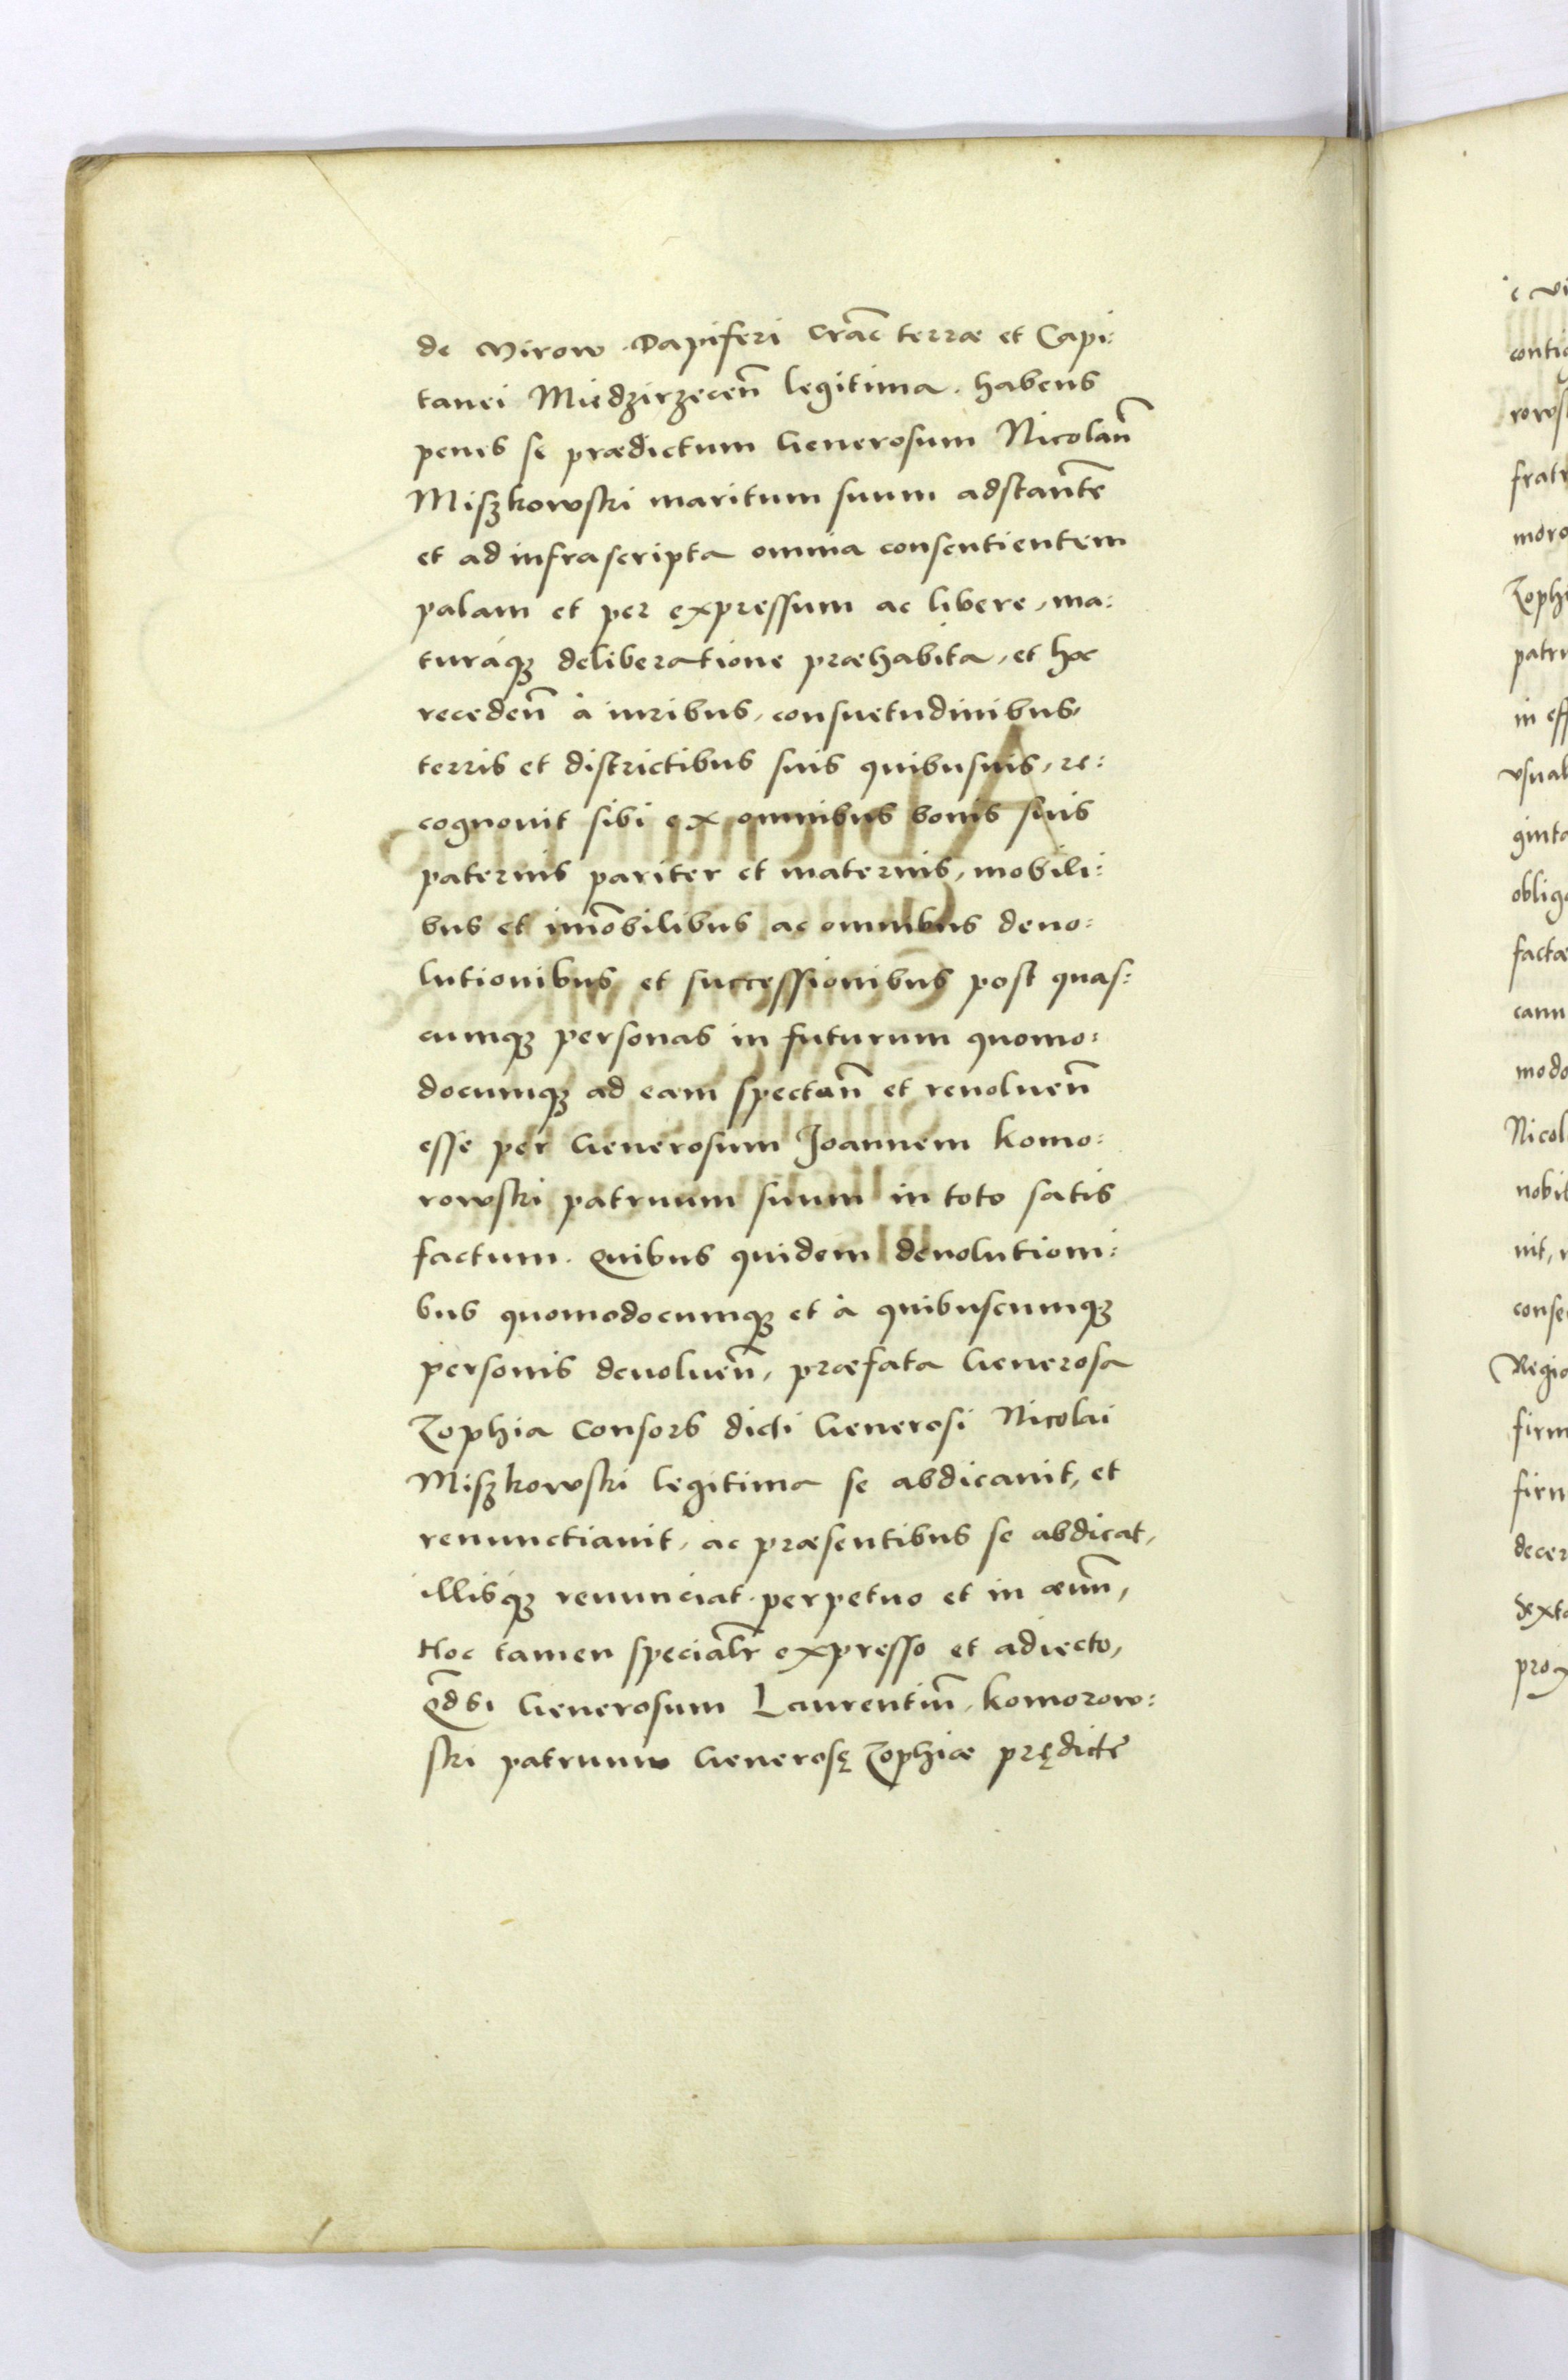 de Mirow Dapiferi Crac̃ terræ et Capi:
tanei Miedzirzecen̄ legitima. habens
penes se prædictum Generosum Nicolaū
Miſzkowski maritum suum adstantē
et ad infrascripta omnia consentientem
palam et per expressum ac libere, ma:
turaq́ꝫ deliberatione præhabita, et hoc
receden̄ à iuribus, consuetudinibus
terris et districtibus suis quibusuis, re:
cognouit sibi ex omnibus bonis suis
paternis pariter et maternis, mobili:
bus et im̄obilibus ac omnibus deuo:
lutionibus et successionibus post quas:
cumqꝫ personas in futurum quomo:
documqꝫ ad eam spectan̄ et reuoluen̄
esse per Generosum Joannem Komo:
rowski patruum suum in toto satis
factum. Quibus quidem deuolutioni:
bus quomodocumqꝫ et à quibuscumqꝫ
personis deuoluen̄, præfata Generosa
Zophia Consors dicti Generosi Nicolai
Miſzkowski legitima se abdicauit, et
renunctiauit, ac præsentibus se abdicat,
illisq́ꝫ renunciat perpetuo et in æuū,
Hoc tamen specialr̄ expresso et adiecto,
Qd̄ si Generosum Laurentiū Komorow:
ski patruum Generosę Zophiæ prędictē
contig
fratr
moro
Zophi
patru
in eff
vsual
ginta
oblig
factæ
modo
Nicol
nobil
nit,
conse
Regio
firm
firm
decer